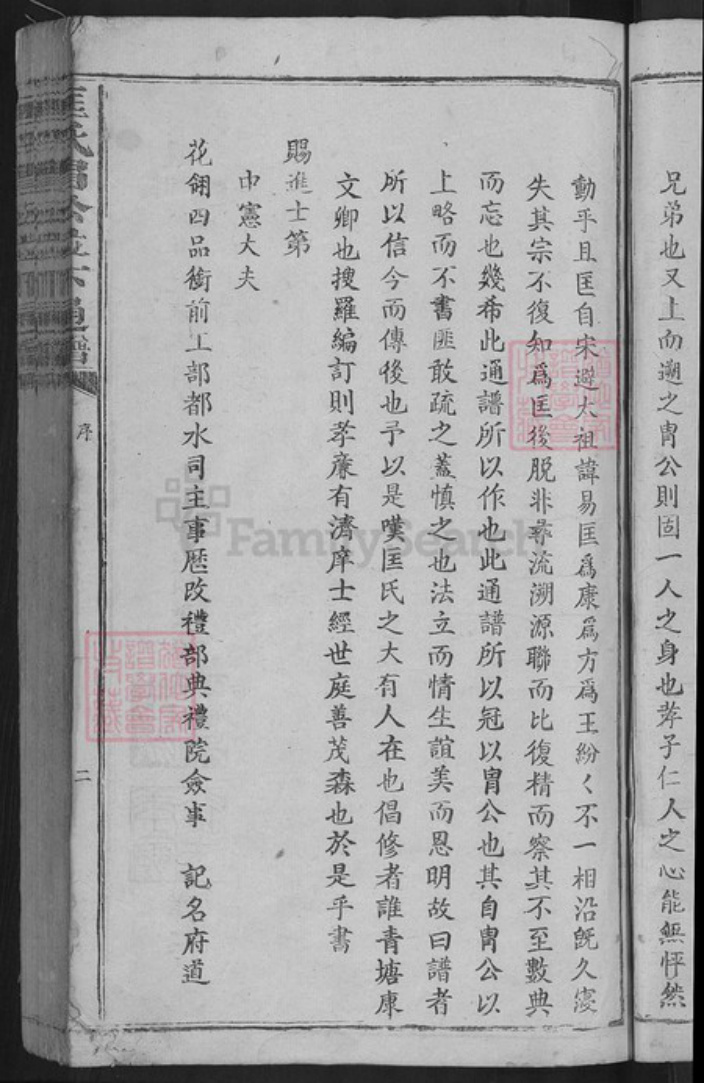 兄弟也又上而遡之胄公則固一人之身也孝子仁人之心能無怦然
動乎且匡自宋避太祖諱易匡爲康爲方爲王紛〱不一相沿既久寖
失其宗不復知爲匡後脱非尋流溯源聯而比復精而察其不至數典
而忘也幾希此通譜所以作也此通譜所以冠以胄公也其自胄公以
上略而不書匪敢疏之蓋慎之也法立而情生誼美而恩明故曰譜者
所以信今而傳後也予以是嘆匡氏之大有人在也倡修者誰青塘康
文卿也搜羅編訂則孝廉有濟庠士經世庭善茂森也於是乎書
賜進士第
中憲大夫
花翎四品銜前工部都水司主事歷改禮部典禮院僉事 記名府道
匡氏胄公位下通譜
序
二
FamilySearch